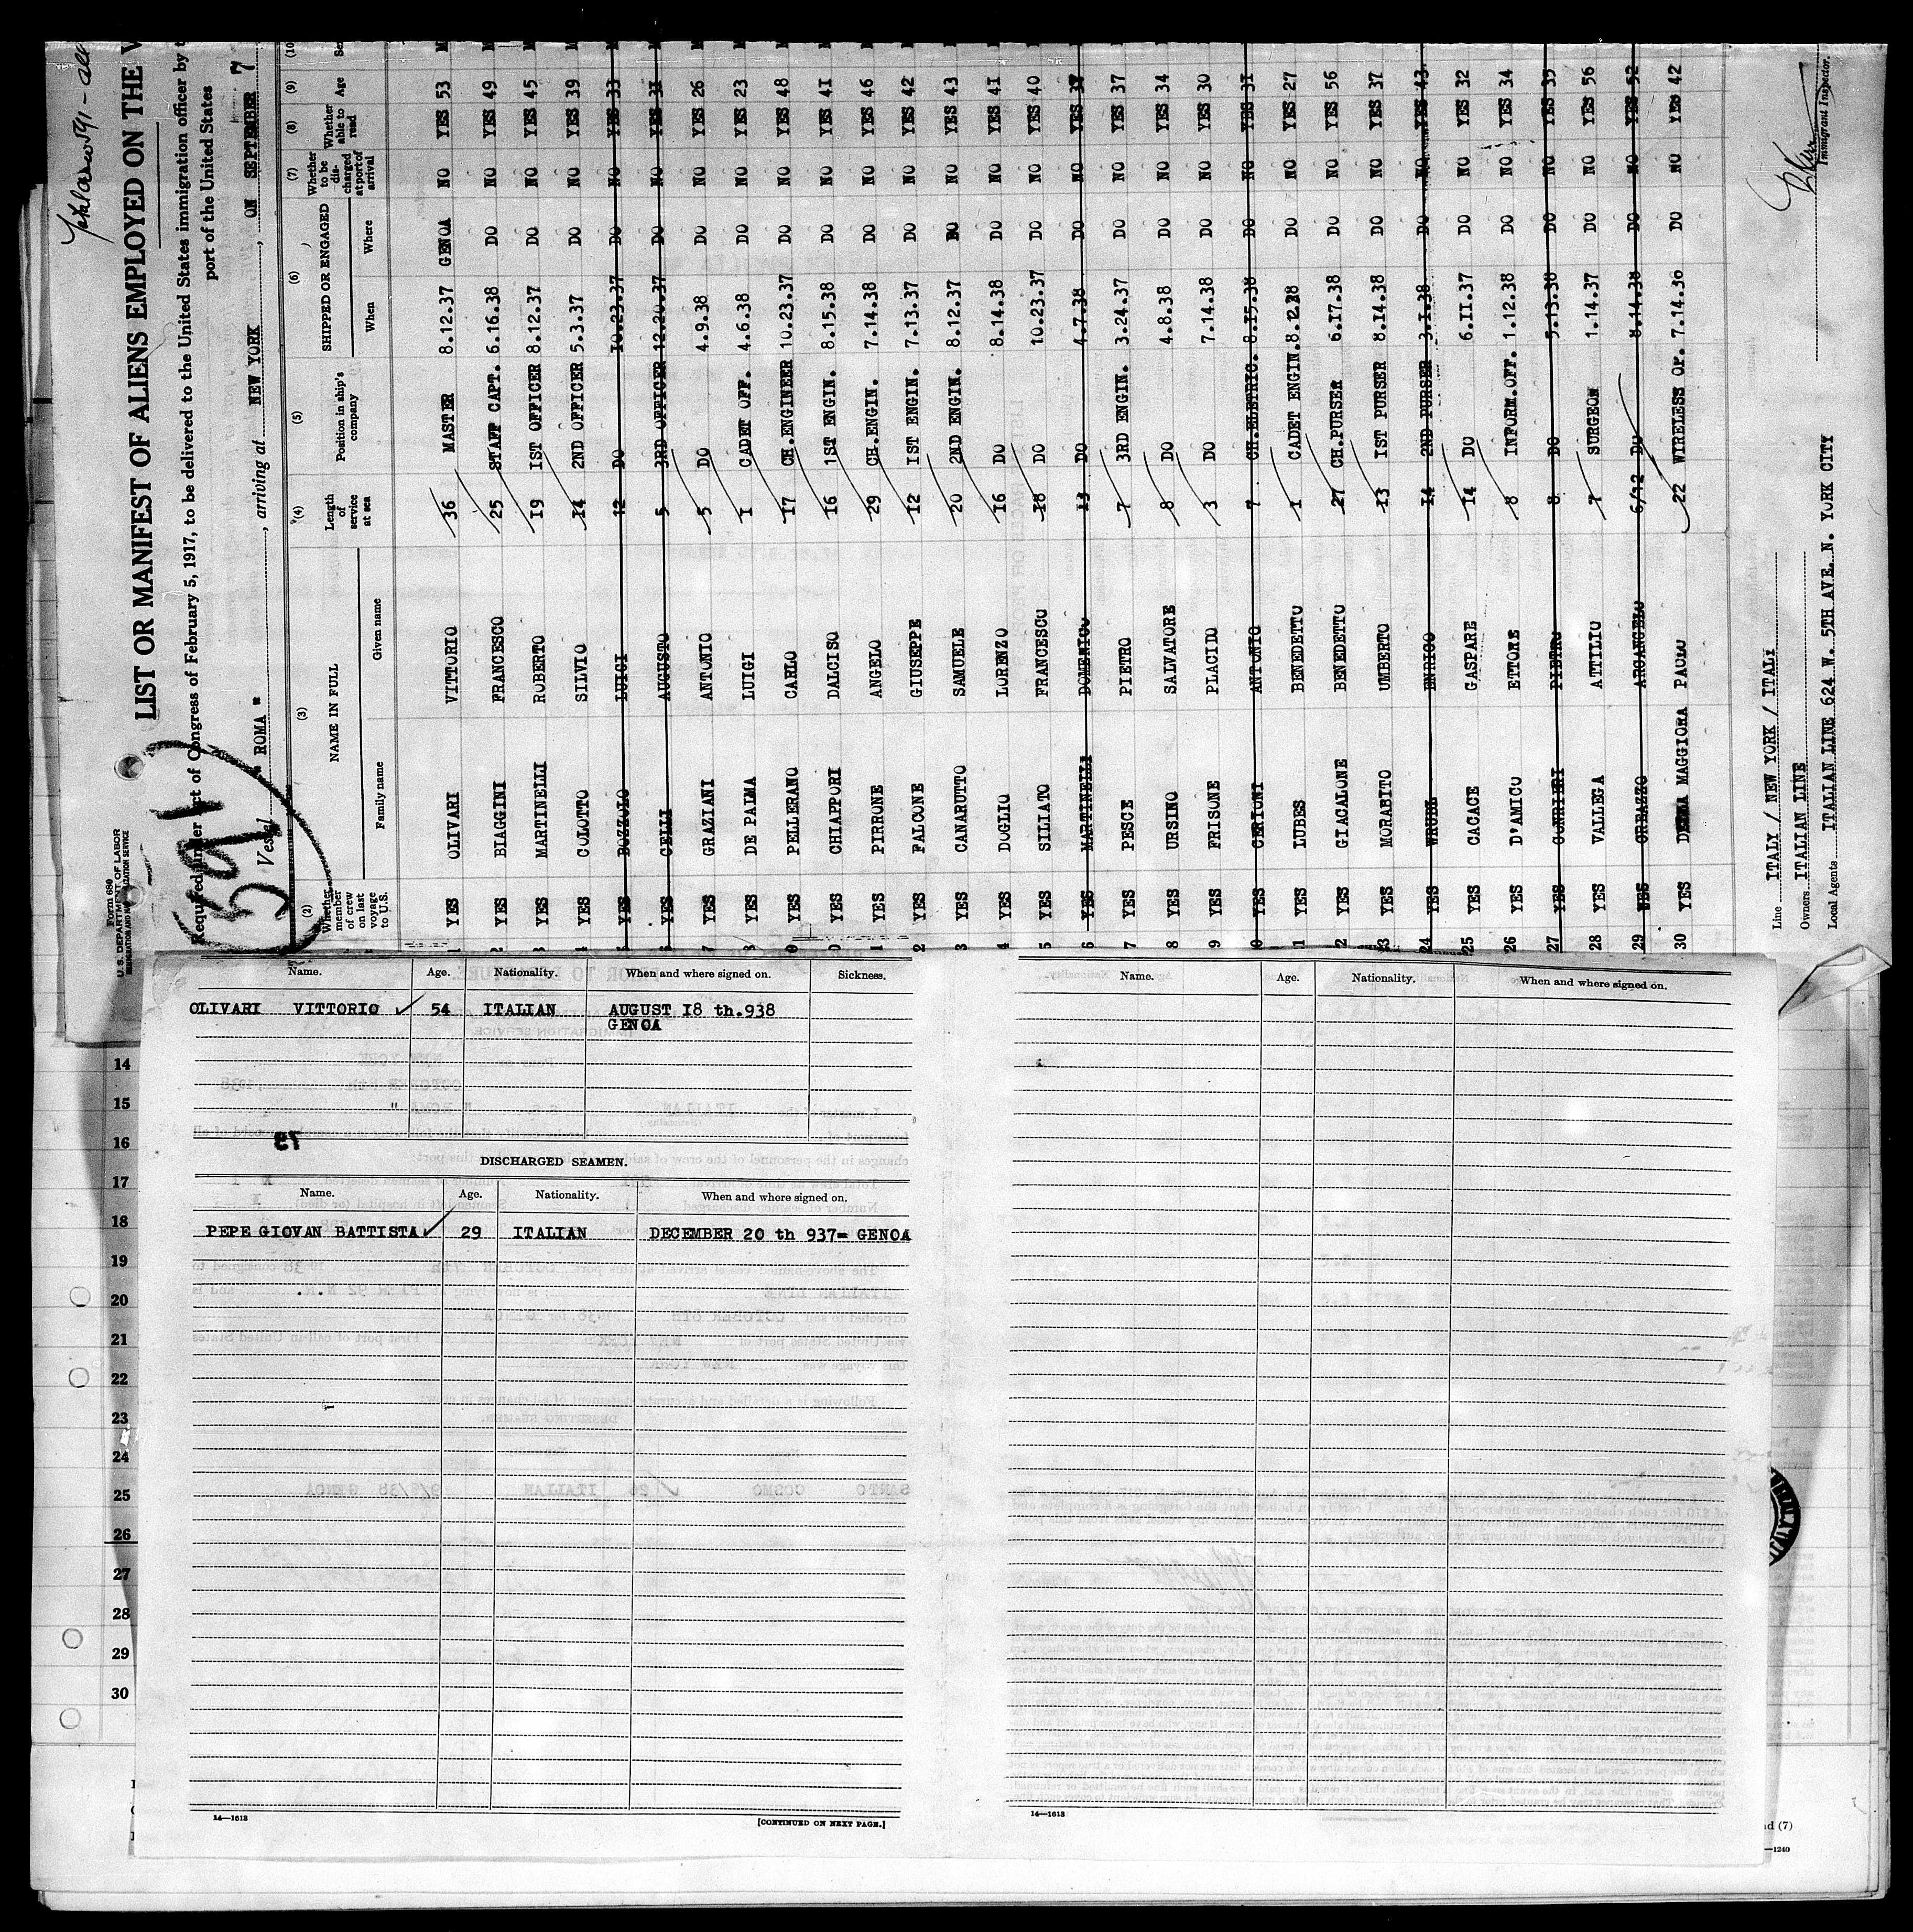 591
Form 680
U. S. DEPARTMENT OF LABOR
IMMIGRATION AND NATURALIZATION SERVICE
LIST OR MANIFEST OF ALIENS EMPLOYED ON THE
Required under Act of Congress of February 5, 1917, to be delivered to the United States immigration officer by
port of the United States
Vessel " ROMA " , arriving at NEW YORK , ON SEPTEMBER 7
(2) (3) (4) (5) (6) (7) (8) (9) (10
Whether member of crew on last voyage to U.S. NAME IN FULL Length of service at sea Position in ship's company SHIPPED OR ENGAGED Whether to be discharged at port of arrival Whether able to read Age Se
Family name Given name When Where
1 YES OLIVARI VITTORIO 36 MASTER 8.12.37 GENOA NO YES 53 M
2 YES BIAGGINI FRANCESCO 25 STAFF CAPT. 6.16.38 DO NO YES 49 M
3 YES MARTINELLI ROBERTO 19 IST OFFICER 8.12.37 DO NO YES 45 M
4 YES COLOTTO SILVIO 14 2ND OFFICER 5.3.37 DO NO YES 39 M
5 YES BOZZOLO LUIGI 12 DO 10.23.37 DO NO YES 33 M
6 YES CELLI AUGUSTO 5 3RD OFFICER 12.20.37 DO NO YES 3I M
7 YES GRAZIANI ANTONIO 5 DO 4.9.38 DO NO YES 26 M
8 YES DE PAIMA LUIGI I CADET OFF. 4.6.38 DO NO YES 23 M
9 YES PELLERANO CARLO 17 CH.ENGINEER 10.23.37 DO NO YES 48 M
10 YES CHIAPPORI DALCISO 16 IST ENGIN. 8.15.38 DO NO YES 4I M
1 YES PIRRONE ANGELO 29 CH.ENGIN. 7.14.38 DO NO YES 46 M
2 YES FALCONE GIUSEPPE 12 IST ENGIN. 7.13.37 DO NO YES 42 M
3 YES CANARUTTO SAMUELE 20 2ND ENGIN. 8.12.37 DO NO YES 43 M
4 YES DOGLIO LORENZO 16 DO 8.14.38 DO NO YES 4I M
5 YES SILIATO FRANCESCO 18 DO 10.23.37 DO NO YES 40 M
6 YES MARTINELLI DOMENICO 13 DO 4.7.38 DO NO YES
7 YES PESCE PIETRO 7 3RD ENGIN. 3.24.37 DO NO YES 37
8 YES URSINO SALVATORE 8 DO 4.8.38 DO NO YES 34
9 YES FRISONE PLACIDO 3 DO 7.14.38 DO NO YES 30
0 YES CERIONI ANTONIO 7 CH.ELETRIC. 8.15.38 DO NO YES 3I
1 YES LUBES BENEDETTO I CADET ENGIN. DO NO YES 27
2 YES GIACALONE BENEDETTO 27 CH.PURSER 6.17.38 DO NO YES 56
23 YES MORABITO UMBERTO 13 IST PURSER 8.14.38 DO NO YES 37
24 YES ENRICO 14 2ND PURSER 3.I.38 DO NO YES 43
25 YES CACACE GASPARE 14 DO 6.11.37 DO NO YES 32
26 YES D'AMICO ETTORE 8 INFORM.OFF. 1.12.38 DO NO YES 34
27 YES PIETRO 8 DO DO NO YES
28 YES VALLEGA ATTILIO 7 SURGEON 1.14.37 DO NO YES 56
29 YES ARCANGELO 6/12 DO 8.14.38 DO NO YES 52
30 YES MAGGIORA PAOLO 22 WIRELESS OP. 7.14.36 DO NO YES 42
Line ITALY / NEW YORK / ITALY
Owners ITALIAN LINE
Local Agents ITALIAN LINE 624 W. 5TH AVE. N. YORK CITY
Immigrant Inspector.
Name. Age. Nationality. When and where signed on. Sickness.
OLIVARI VITTORIO 54 ITALIAN AUGUST I8 th.938
GENOA
DISCHARGED SEAMEN.
Name. Age. Nationality. When and where signed on.
PEPE GIOVAN BATTISTA 29 ITALIAN DECEMBER 20 th 937= GENOA
14—1613
[CONTINUED ON NEXT PAGE.]
Name. Age. Nationality. When and where signed on.
14—1613
14
15
16
17
18
19
20
21
22
23
24
25
26
27
28
29
30
nd (7)
—1240